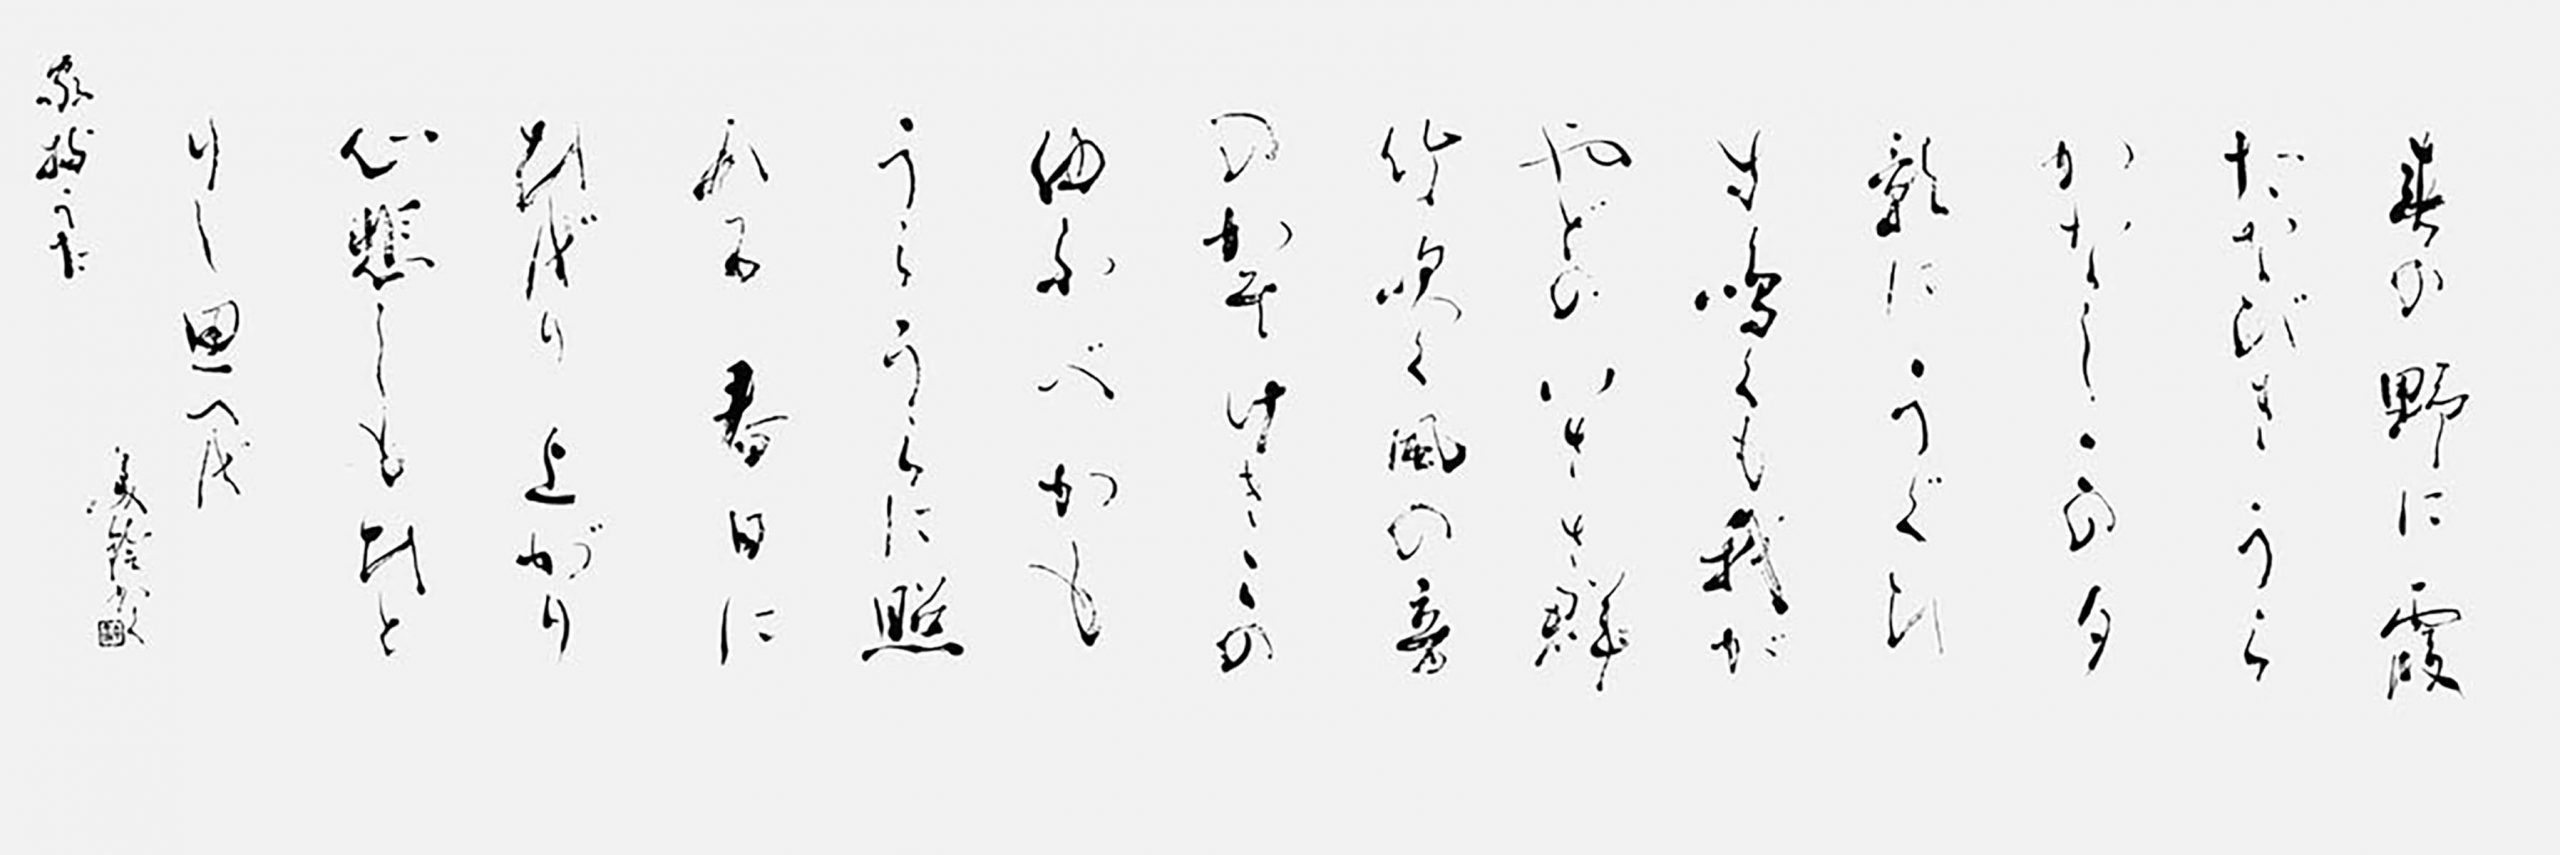 春の野に霞
たなびきうら
がなしこの夕
影にうぐひ
す鳴くも我が
やどのいささ群
竹吹く風の音
のかそけきこの
ゆふべかも
うらうらに照
れる春日に
ひばり上がり
心悲しもひと
りし思へば
家持うた